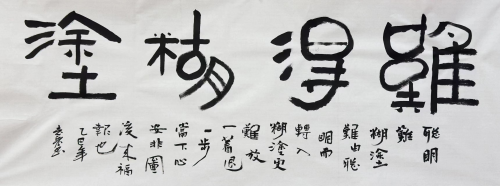 難得糊塗
聰明
難
糊塗
難由聰
明而
轉入
糊塗更
難放
一著退
一步
當下心
安非圖
後來福
報也
乙巳年